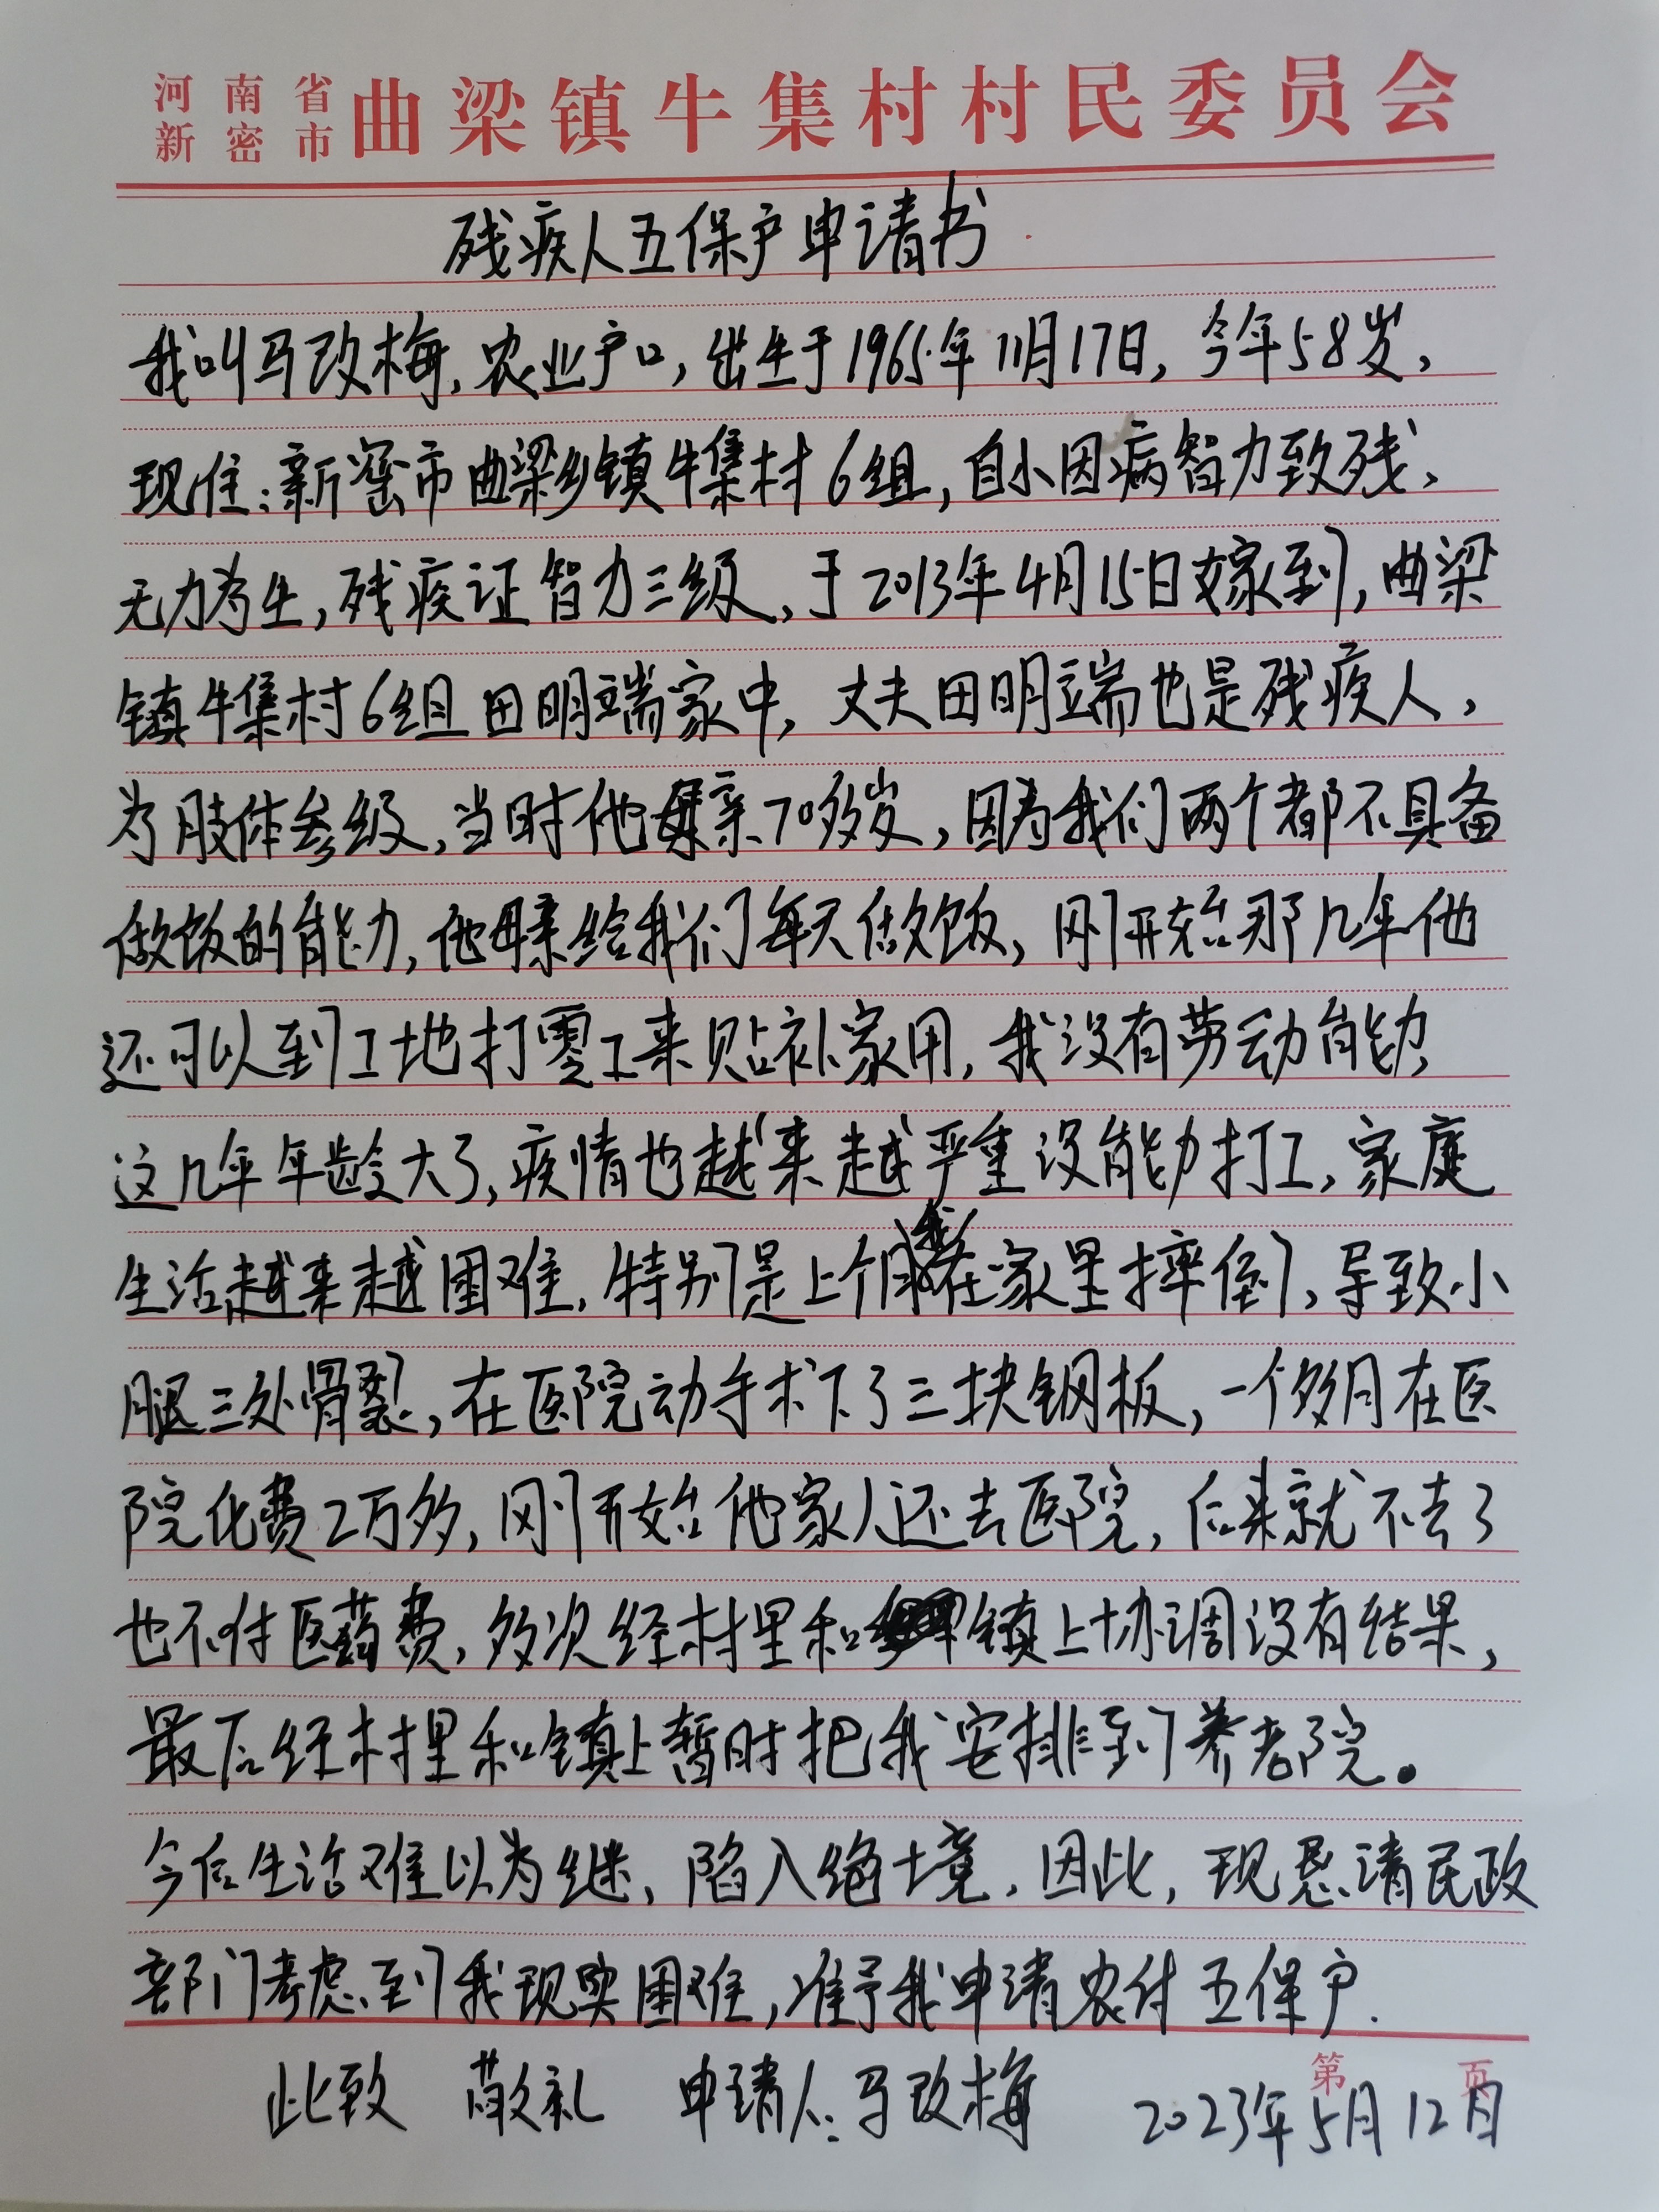 河南省
新密市
曲梁镇牛集村村民委员会
残疾人五保户申请书
我叫马改梅,农业户口,出生于1965年11月17日,今年58岁,
现住:新密市曲梁乡镇牛集村6组,自小因病智力致残、
无力为生,残疾证智力三级,于2013年4月15日嫁到,曲梁
镇牛集村6组田明端家中,丈夫田明端也是残疾人,
为肢体叁级,当时他母亲70多岁,因为我们两个都不具备
做饭的能力,他母亲给我们每天做饭,刚开始那几年他
还可以到工地打零工来贴补家用,我没有劳动能力,
这几年年龄大了,疾情也越来越严重没能力打工,家庭
生活越来越困难,特别是上个月我在家里摔倒,导致小
腿三处骨裂,在医院动手术下了三块钢板,一个多月在医
院化费2万多,刚开始他家人还去医院,后来就不去了
也不付医药费,多次经村里和镇上协调没有结果,
最后经村里和镇上暂时把我安排到养老院。
今后生活难以为继,陷入绝境,因此,现恳请民政
部门考虑到我现实困难,准予我申请农付五保户.
此致 敬礼 申请人:马改梅 2023年5月12日
第 页